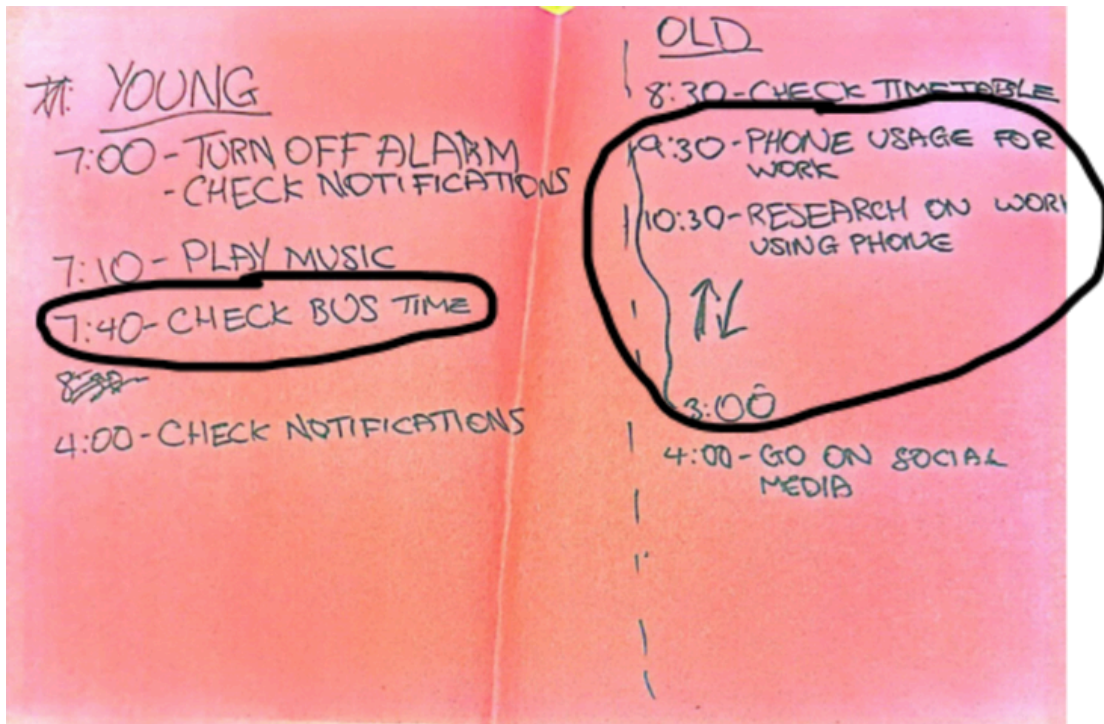 YOUNG
7:00 - TURN OFF ALARM
- CHECK NOTIFICATIONS
7:10 - PLAY MUSIC
7:40 - CHECK BUS TIME
4:00 - CHECK NOTIFICATIONS
OLD
8:30 - CHECK TIMETABLE
9:30 - PHONE USAGE FOR
WORK
10:30 - RESEARCH ON WORK
USING PHONE
3:00
4:00 - GO ON SOCIAL
MEDIA